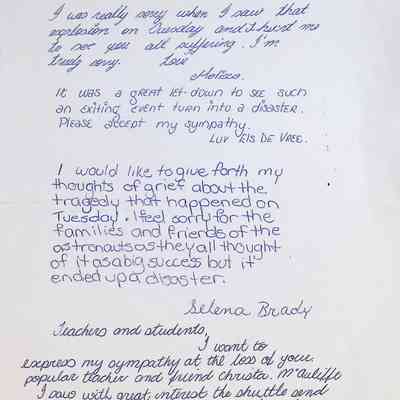 I was really sorry when I saw that
explosion on Tuesday and it hurt me
to see you all suffering. I'm
truly sorry. Love
IT WAS A GREAT LET-DOWN TO SEE SUCH
AN EXITING EVENT TURN INTO A DISASTER.
PLEASE ACCEPT MY SYMPATHY.
LUV ELS DE VREE.
I would like to give forth my
thoughts of grief about the
tragedy that happened on
Tuesday. I feel sorry for the
families and friends of the
astronauts as they all thought
of it as a big success but it
ended up a disaster.
Selena Brady
Teachers and students,
I want to
express my sympathy at the loss of your
popular teacher and friend Christa. McAuliffe
I saw with great interest the shuttle send